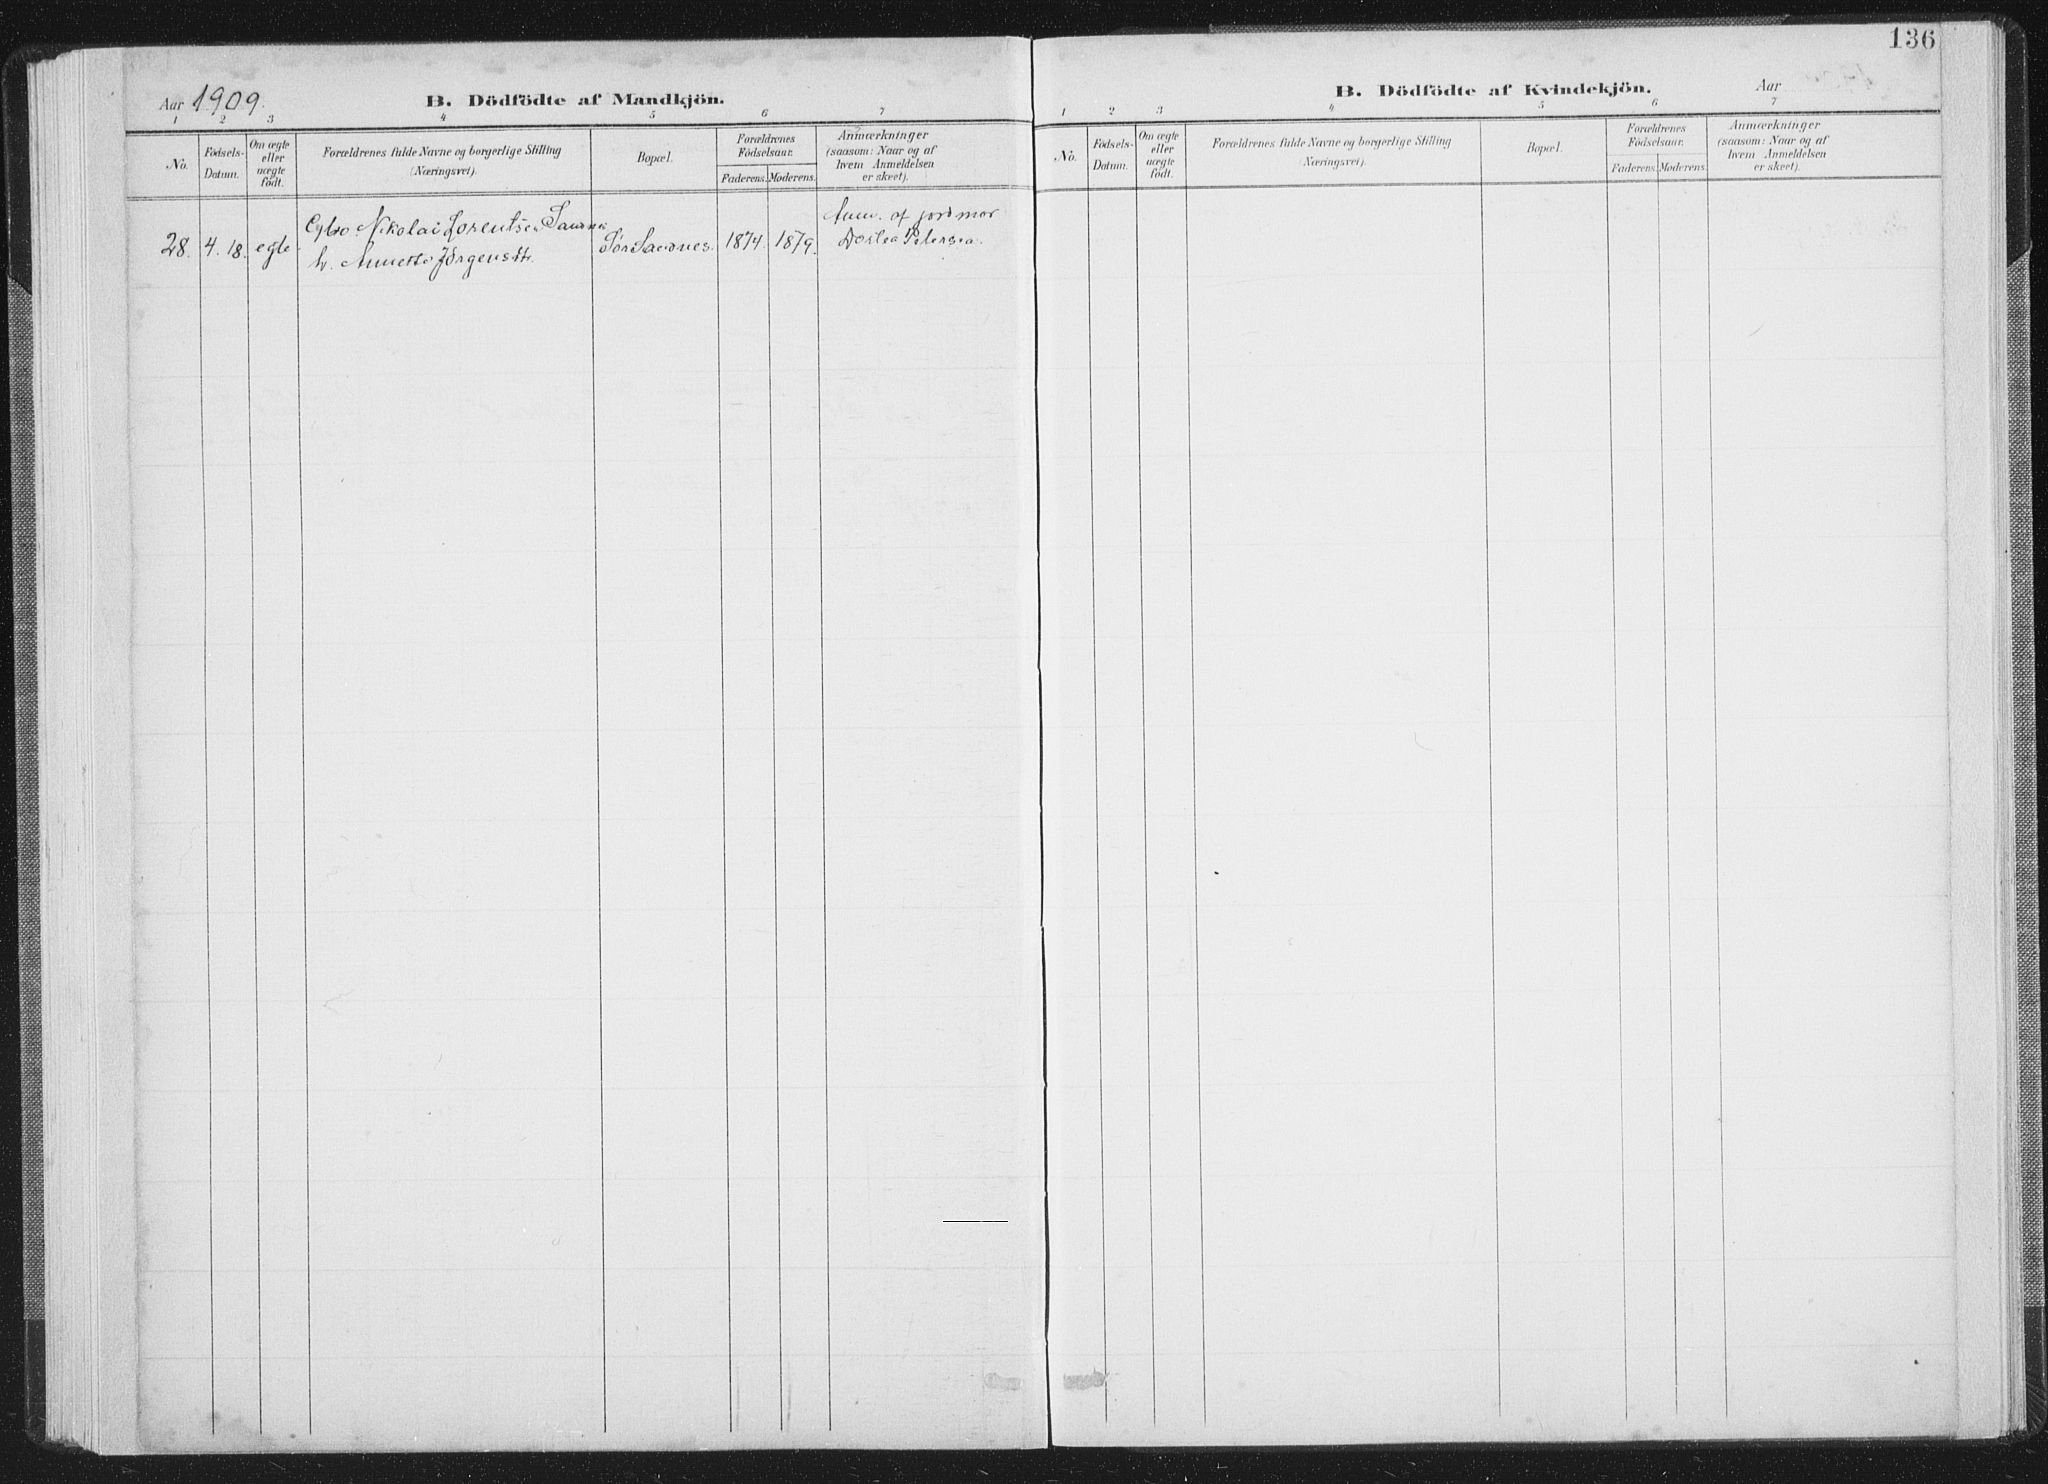 136
Aar 1909.
B. Dödfödte af Mandkjön.
1 2 3 4 5 6 7
No.
Födsels-
Datum.
Om ægte
eller
uægte
födt.
Forældrenes fulde Navne og borgerlige Stilling
(Næringsvei).
Bopæl.
Forældrenes
Födselsaar.
Faderens. Moderens.
Anmærkninger
(saasom: Naar og af
hvem Anmeldelsen
er skeet).
28. 4. 18. egte
Nikolai Lorentsen
h. Annette Jörgensdtr.
Sör Sandnes. 1874. 1879.
Anm. af jordmor
Dortea Petersen.
B. Dödfödte af Kvindekjön.
Aar
1 2 3 4 5 6 7
No.
Födsels-
Datum.
Om ægte
eller
uægte
födt.
Forældrenes fulde Navne og borgerlige Stilling
(Næringsvei).
Bopæl.
Forældrenes
Födselsaar.
Faderens. Moderens.
Anmærkninger
(saasom: Naar og af
hvem Anmeldelsen
er skeet).